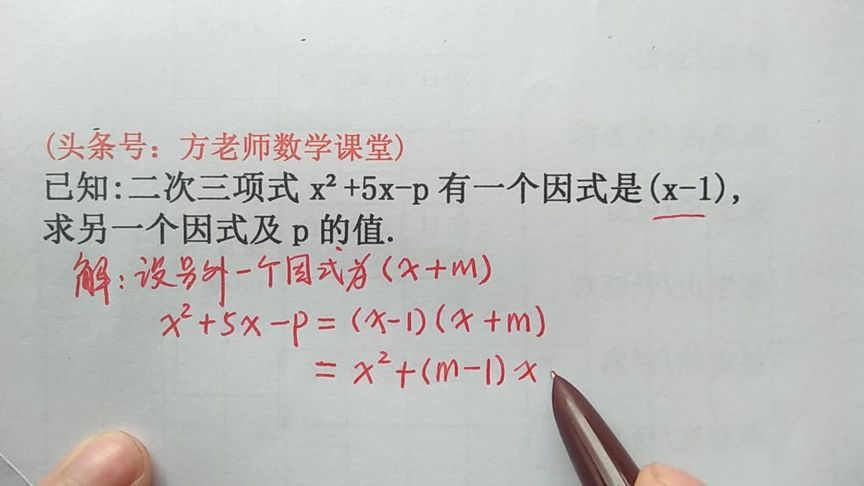 (头条号：方老师数学课堂)
已知:二次三项式 x²+5x-p 有一个因式是(x-1),
求另一个因式及 p 的值.
解:设另外一个因式为(x+m)
x²+5x-p=(x-1)(x+m)
=x²+(m-1)x